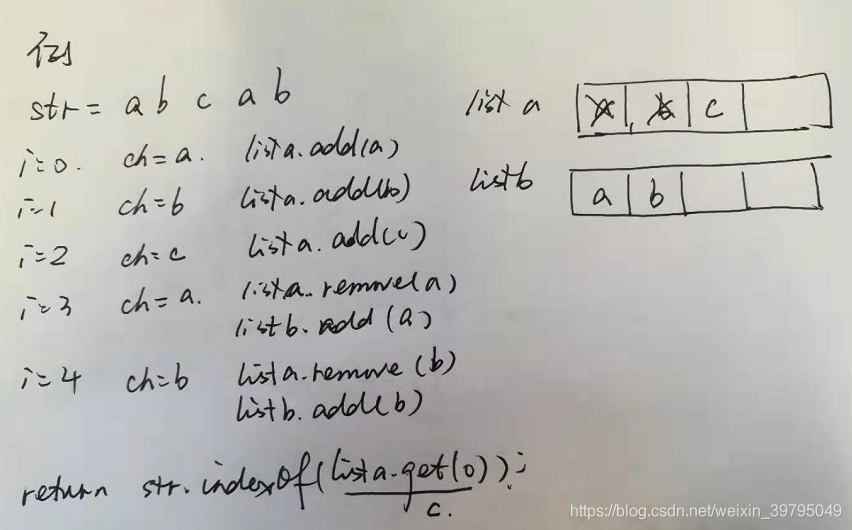 例
str = a b c a b
i=0. ch=a. lista.add(a)
i=1 ch=b lista.add(b)
i=2 ch=c lista.add(c)
i=3 ch=a. lista.remove(a)
listb.add(a)
i=4 ch=b lista.remove(b)
listb.add(b)
return str.indexOf(lista.get(0));
c.
list a a b c
listb a b
https://blog.csdn.net/weixin_39795049